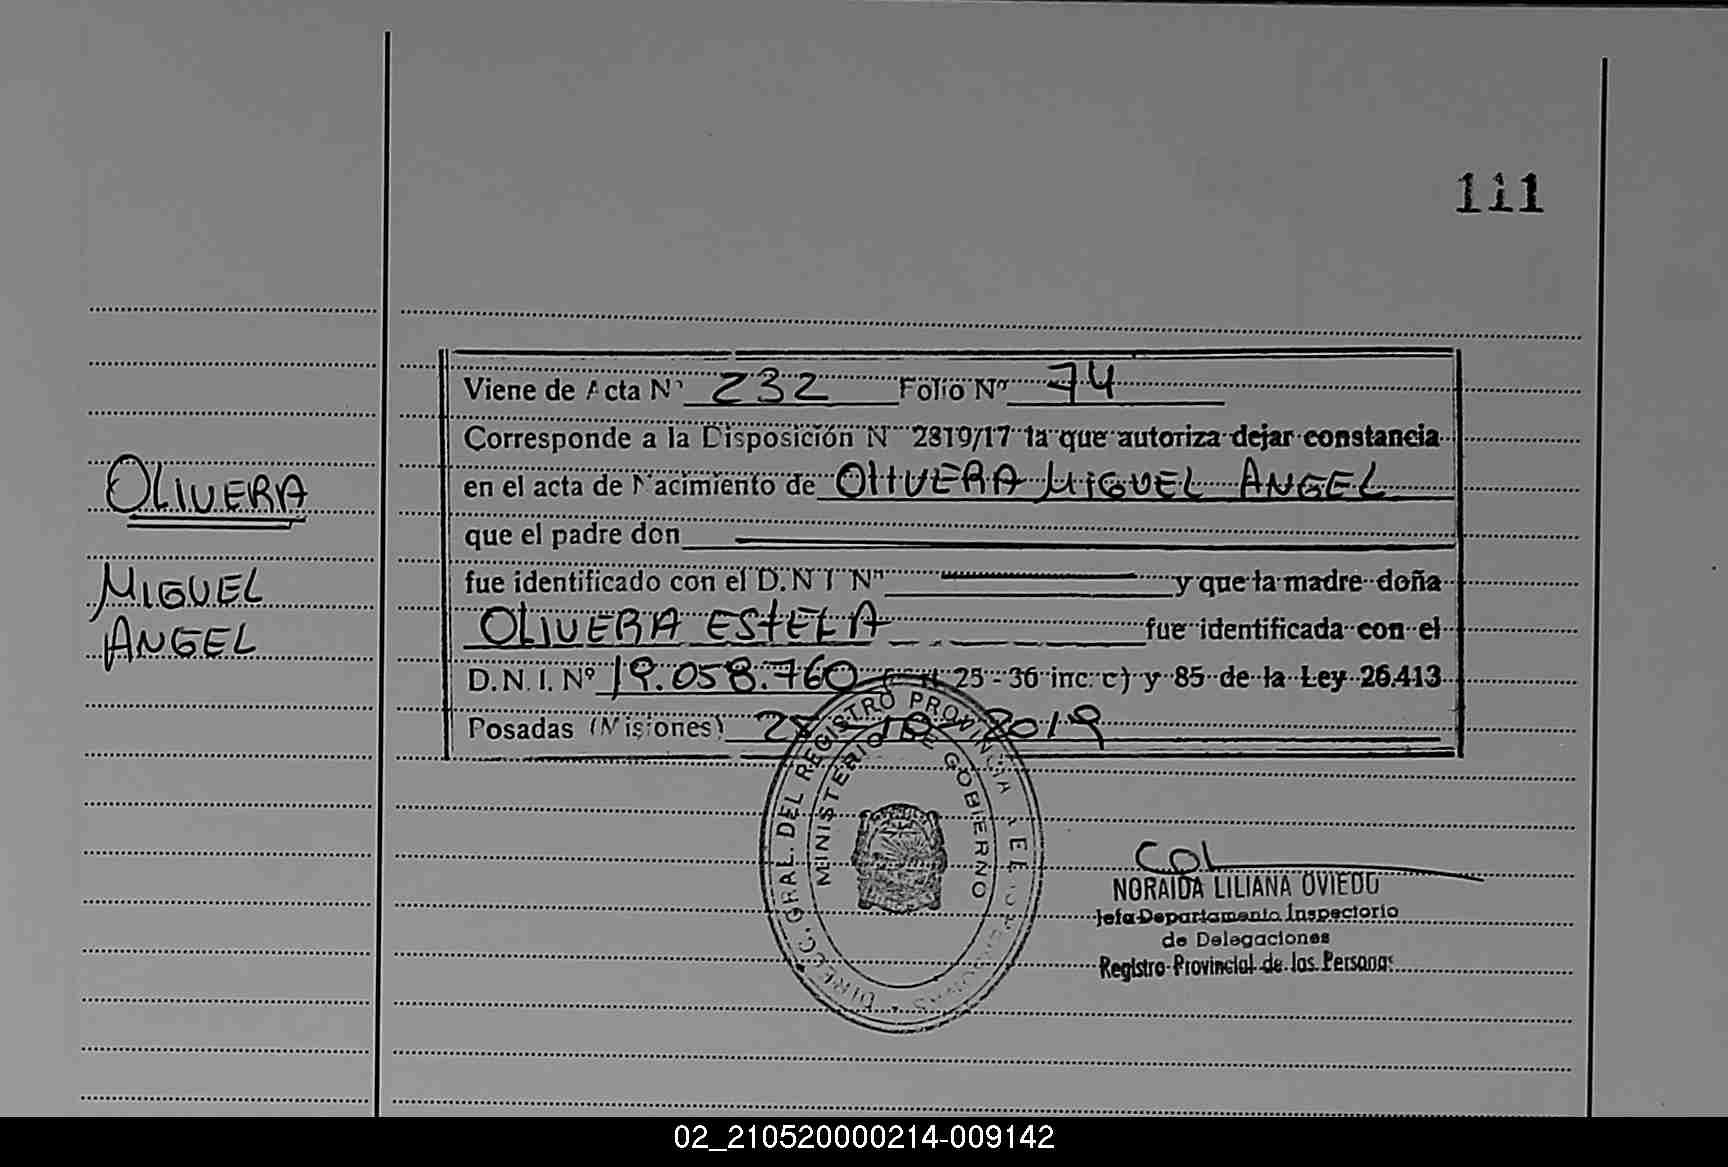 111
OLIVERA
MIGUEL
ANGEL
Viene de Acta Nº 232 Folio Nº 74
Corresponde a la Disposición N 2819/17 la que autoriza dejar constancia
en el acta de Nacimiento de OLIVERA MIGUEL ANGEL
que el padre don
fue identificado con el D.N I Nº y que la madre doña
OLIVERA ESTELA fue identificada con el
D.N.I. Nº 19.058.760 25 - 36 inc. c) y 85 de la Ley 26.413
Posadas (Misiones) 10 2019
DIRECC. GRAL. DEL REGISTRO PROVINCIAL
MINISTERIO DE GOBIERNO
NORAIDA LILIANA OVIEDO
Jefa Departamento Inspectorio
de Delegaciones
Registro Provincial de las Personas
02_210520000214-009142